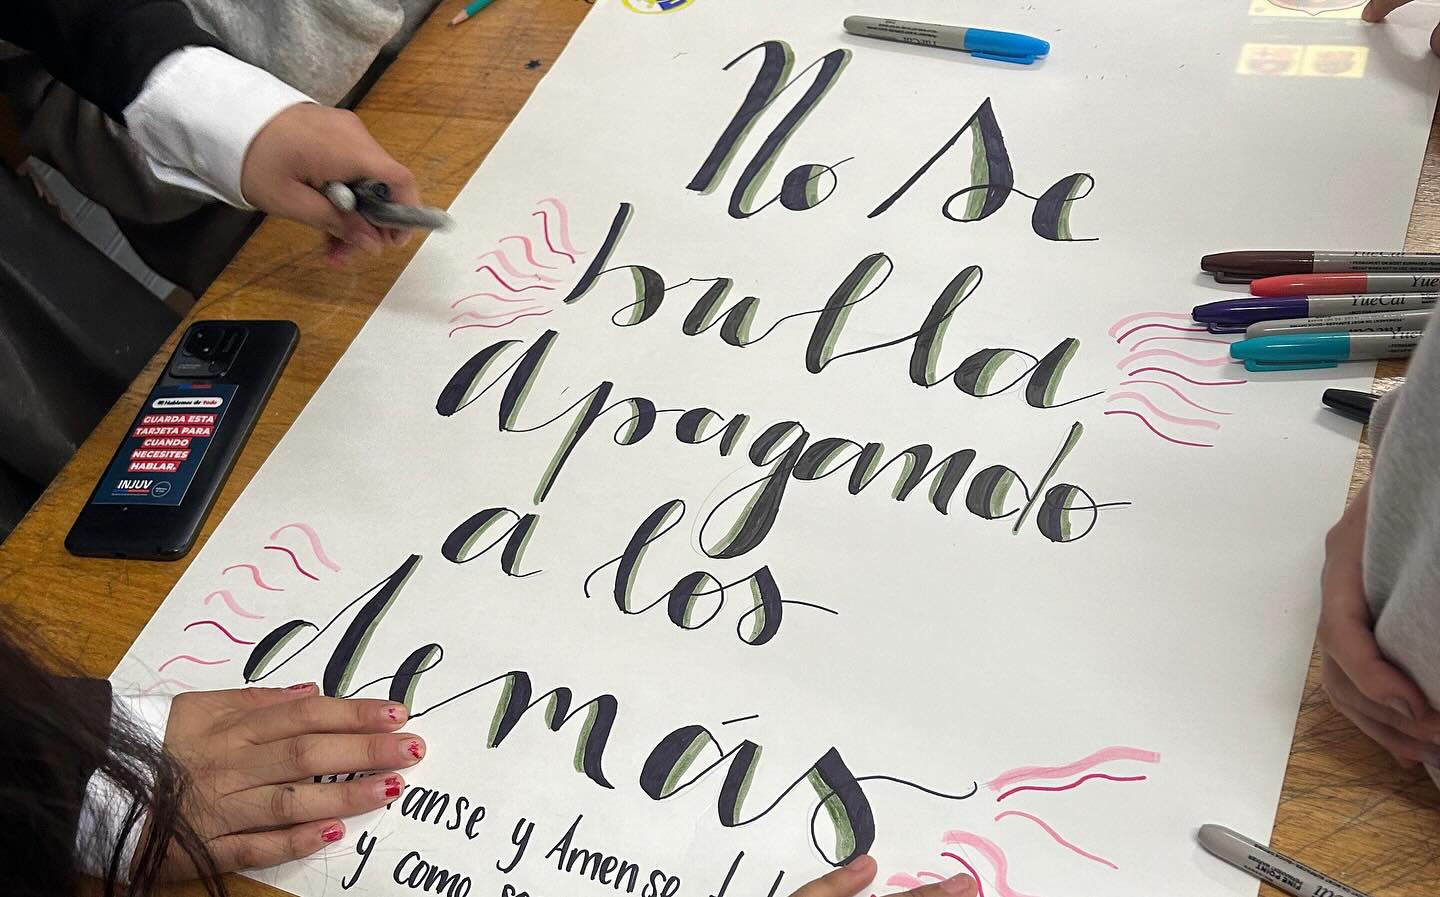 No se
brilla
apagando
a los
demás
ranse y Amense
y como
YueCai
YueCai
YueCai
FINE POINT
Hablemos de todo
GUARDA ESTA
TARJETA PARA
CUANDO
NECESITES
HABLAR.
INJUV